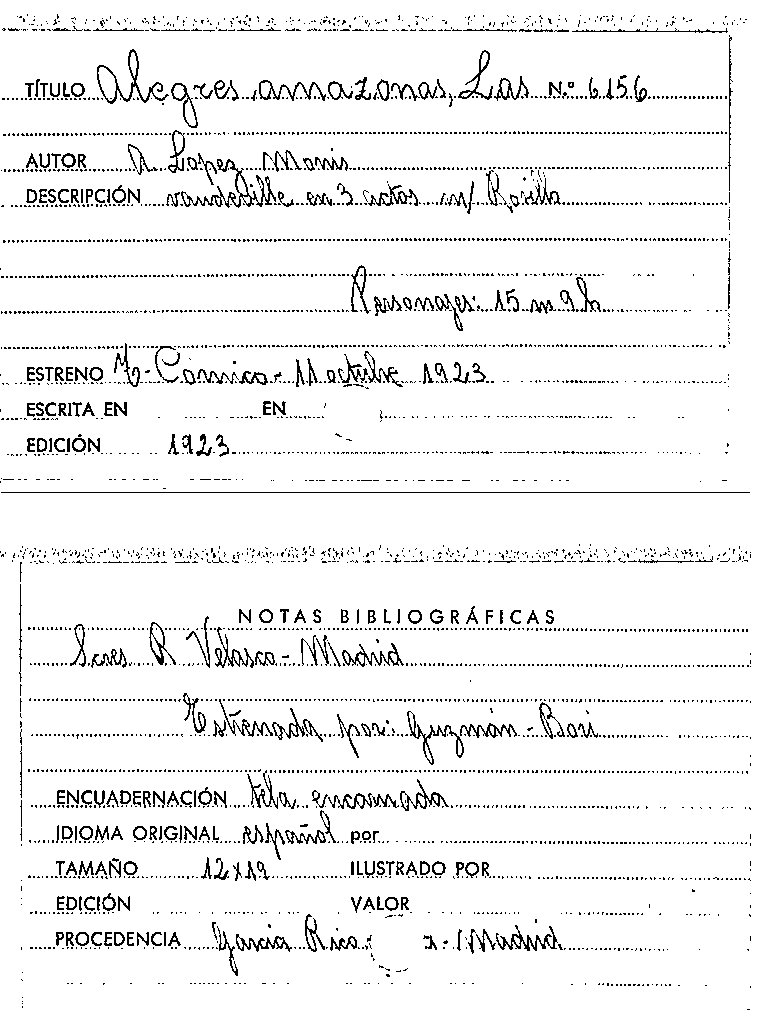 TÍTULO Alegres amazonas, Las N.º 6156
AUTOR A. Lopez Monis
DESCRIPCIÓN vaudeville en 3 actos m/ Rosillo
Personajes: 15 m 9 h
ESTRENO M- Cómico - 11 octubre 1923
ESCRITA EN EN
EDICIÓN 1923
NOTAS BIBLIOGRÁFICAS
Scres R Velasco - Madrid
Estrenada por: Guzmán - Bori
ENCUADERNACIÓN tela encarnada
IDIOMA ORIGINAL español por
TAMAÑO 12x19 ILUSTRADO POR
EDICIÓN VALOR
PROCEDENCIA Garcia Rico - Madrid